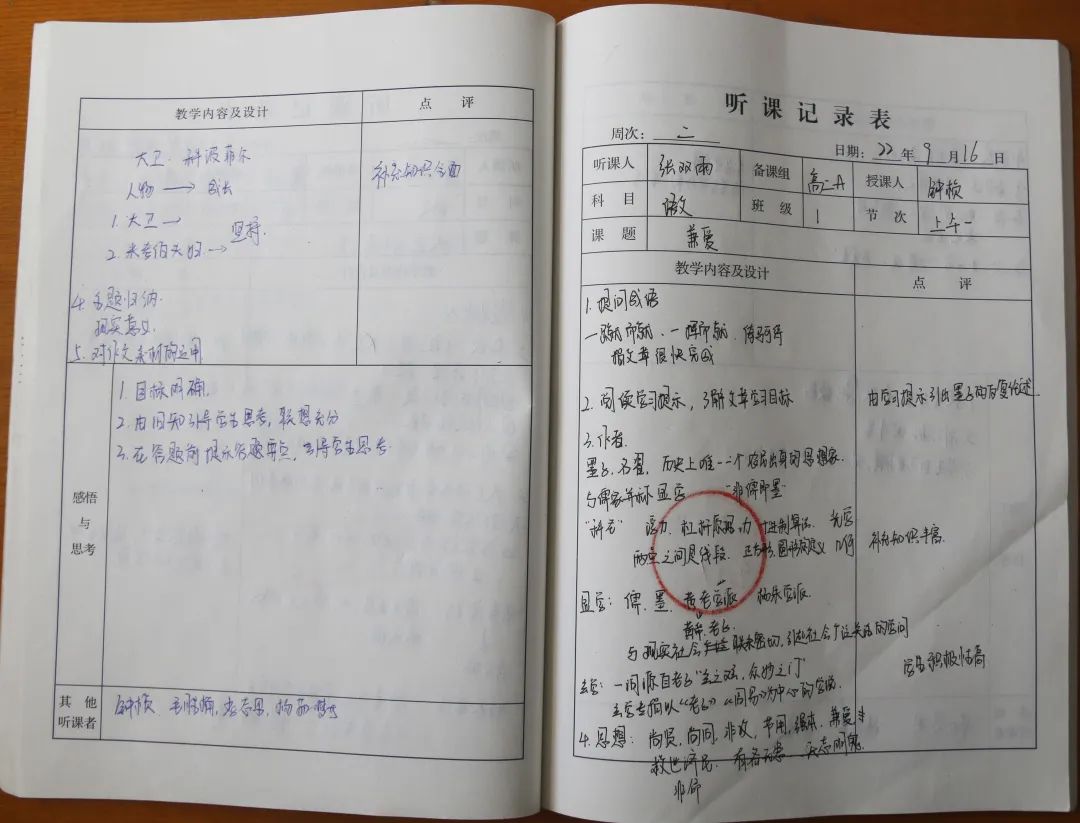 教学内容及设计 点 评
大卫·科波菲尔
人物 → 成长 补充知识全面
1. 大卫 →
坚持.
2. 米考伯夫妇 →
4. 主题归纳.
现实意义.
5. 对作文素材的运用
感悟与思考
1. 目标明确.
2. 由旧知引导学生思考, 联想充分
3. 在答题前提示答题要点, 引导学生思考
其他听课者
钟桢
听课记录表
周次: 二 日期: 22 年 9 月 16 日
听课人 张双雨 备课组 高二A 授课人 钟桢
科目 语文 班级 1 节次 上午一
课题 兼爱
教学内容及设计 点 评
1. 提问成语
一蹴而就、一挥而就、倚马可待
指文章很快完成
2. 阅读学习提示, 了解文章学习目标 由学习提示引出墨子的反复论述
3. 作者.
墨子, 名翟, 历史上唯一一个农民出身的思想家.
与儒家并称显学 "非儒即墨"
"科圣" 浮力. 杠杆原理 十进制算法. 光学
两点之间是线段. 正方形, 圆形的定义 几何 补充知识丰富.
显学: 儒. 墨. 黄老学派 杨朱学派.
黄帝. 老子.
与现实社会联系密切, 引起社会广泛关注的学问
玄学: 一词源自老子"玄之又玄, 众妙之门" 学生积极性高
玄学是指以《老子》《周易》为中心的学说.
4. 思想: 尚贤, 尚同, 非攻, 节用, 兼爱
救世济民. 天志明鬼
非命